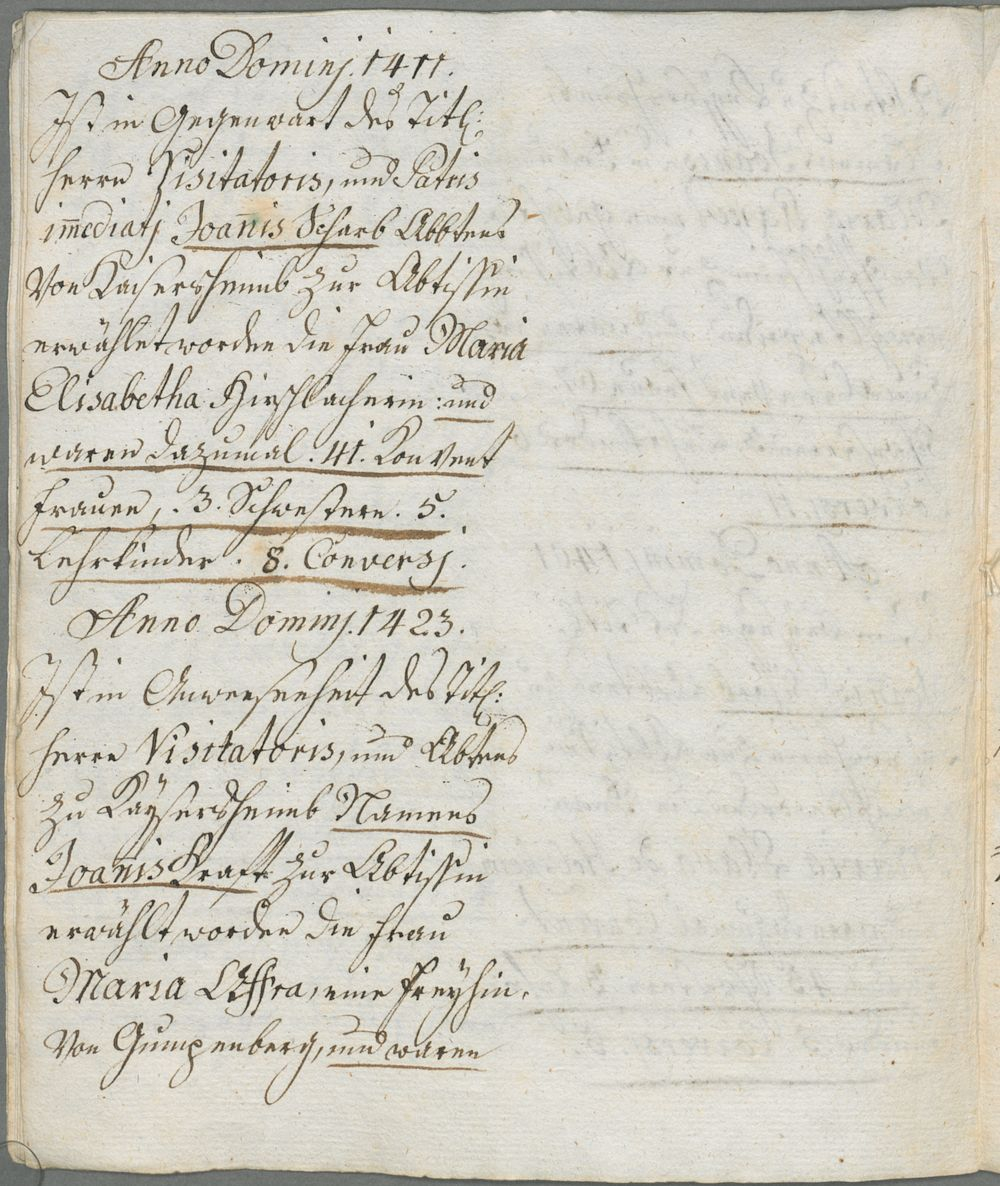 Anno Dominj. 1411.
Ist in Gegenwart des Titl:
Herrn Visitatoris, und Patris
im̄ediatj Joan̄is Scharb Abbtens
Von Kaisersheimb zur Abtissin
erwählet worden die Frau Maria
Elisabetha Hirschbacherin: und
waren dazumal. 41. Konvent
Frauen, . 3. Schwestern. 5.
Lehrkinder. 8. Conversj.
Anno Dominj. 1423.
Ist in Anwesenheit des Titl:
Herrn Visitatoris, und Abtens
zu Kaÿsersheimb Namens
Joan̄is Kraft zur Abtissin
erwählt worden die Frau
Maria Affra, eine Freyhin.
Von Gumpenberg, und waren